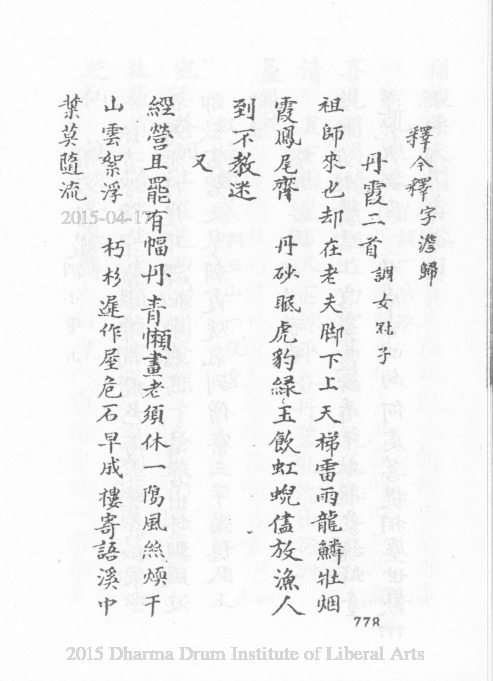 釋今釋 字澹歸
丹霞二首 調女冠子
祖師來也却在老夫脚下上天梯雷雨龍鱗壯烟
霞鳳尾齊 丹砂眠虎豹綠玉飲虹蜺儘放漁人
到不教迷
又
經營且罷有幅丹青懶畫老須休一隖風絲煗千
山雲絮浮 朽杉遲作屋危石早成樓寄語溪中
葉莫隨流
778
2015-04-17
2015 Dharma Drum Institute of Liberal Arts